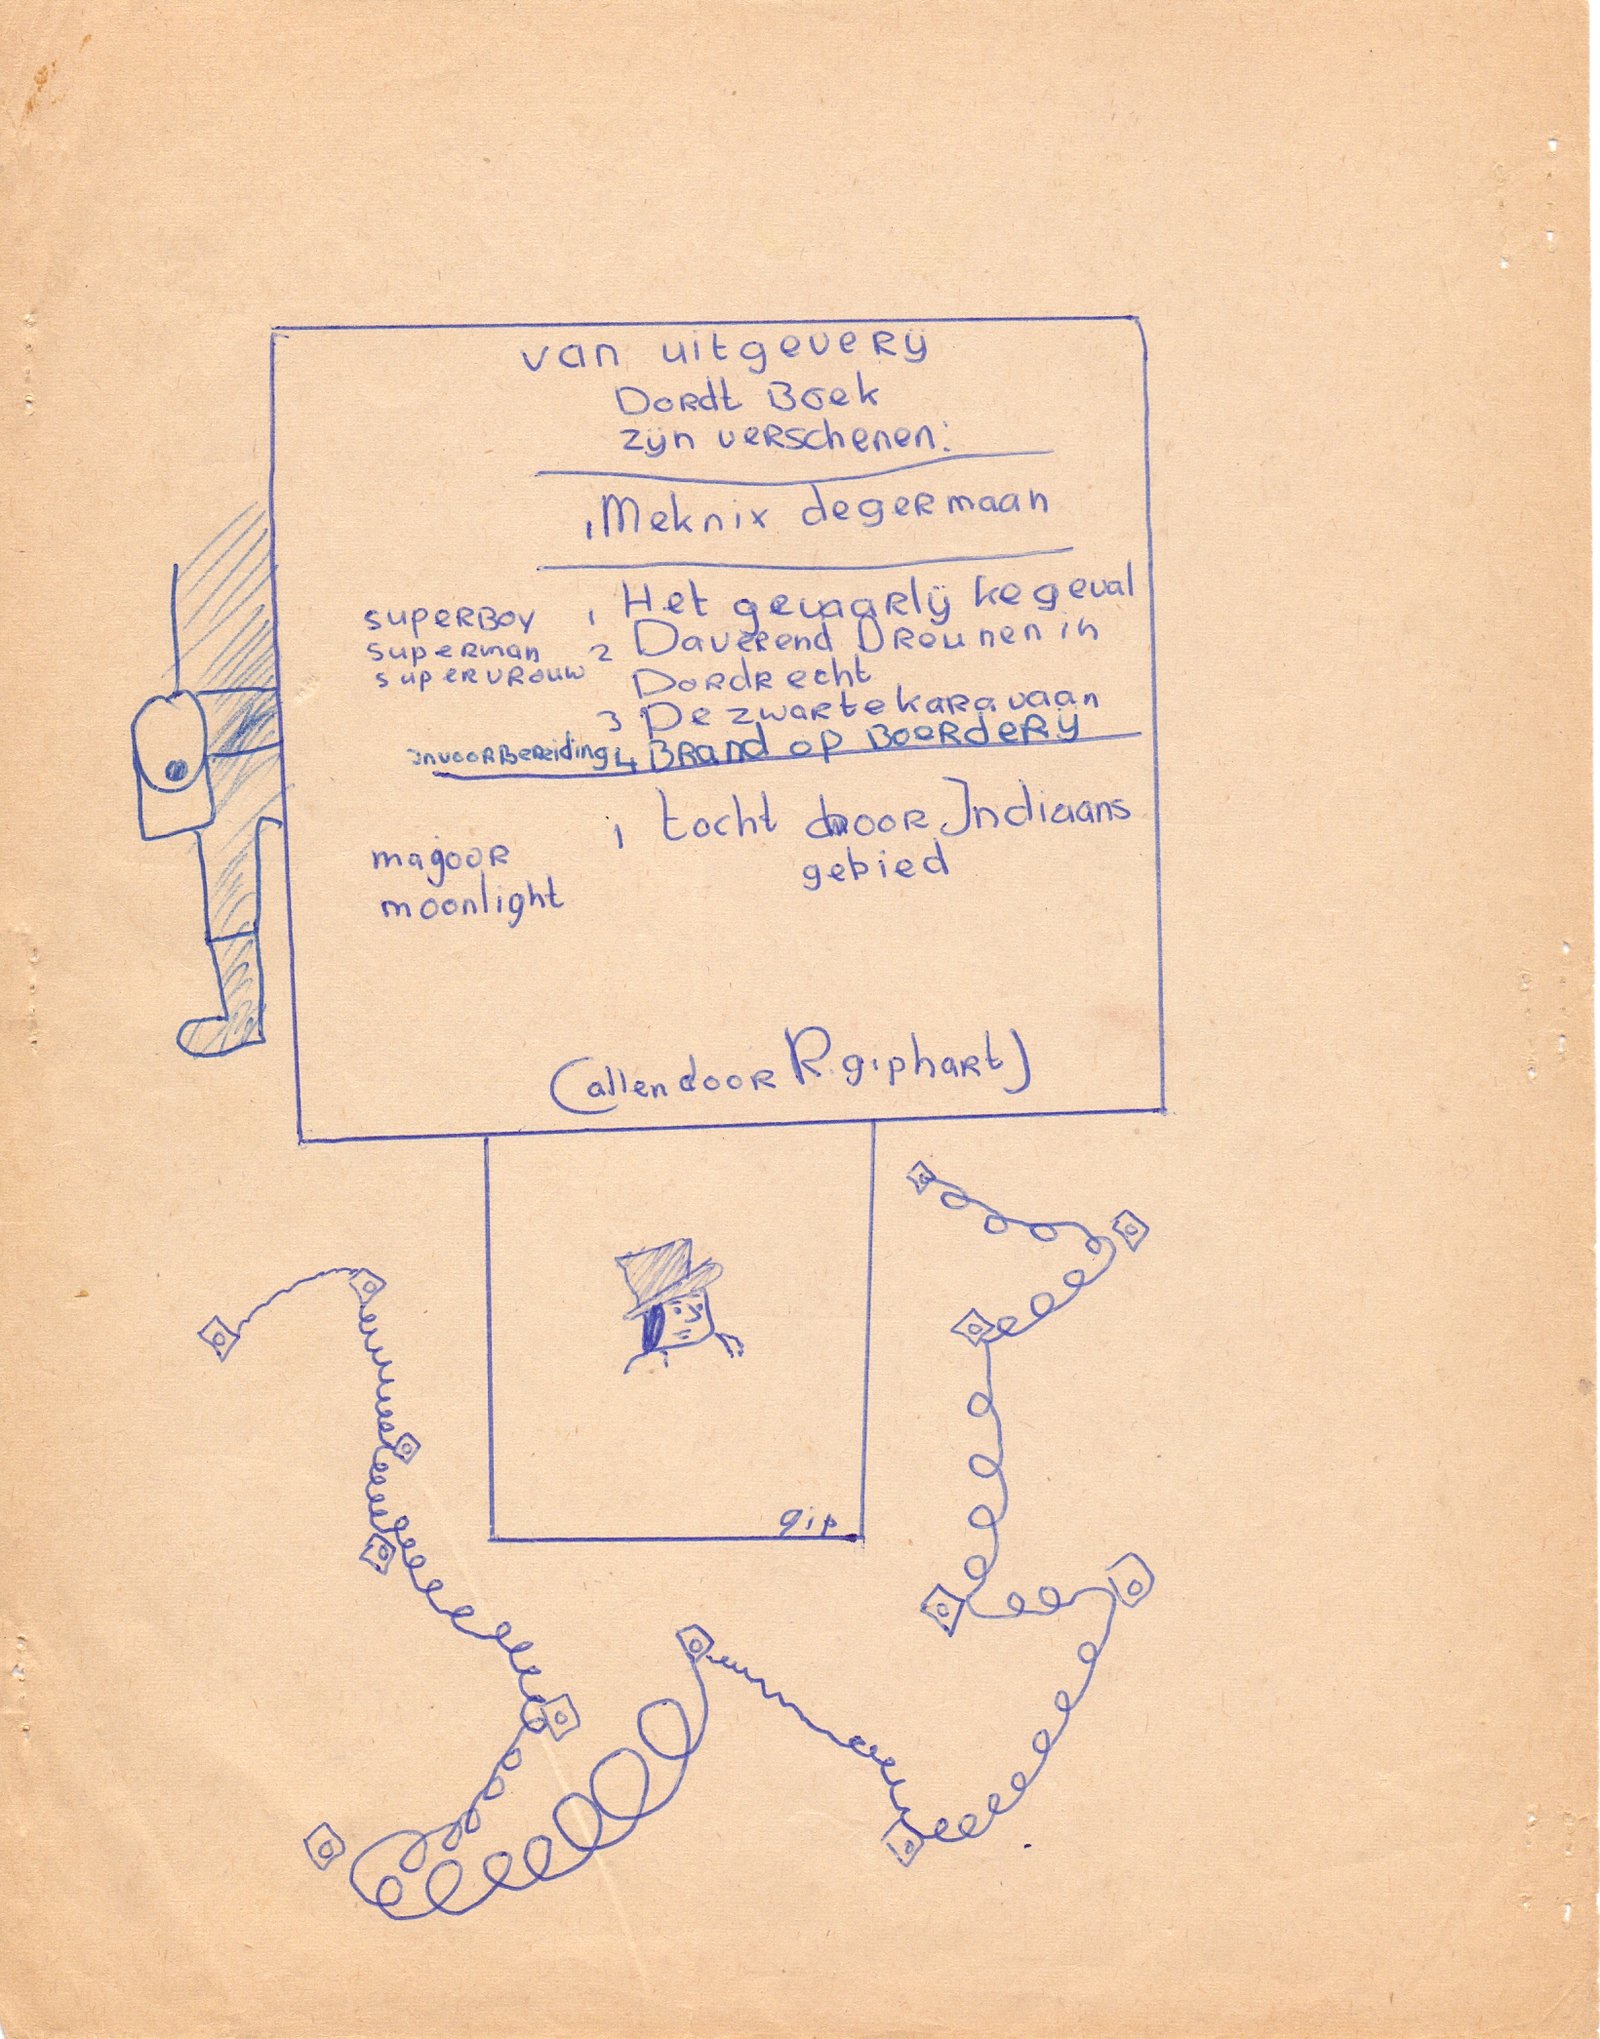 van uitgeverij
Dordt Boek
zijn verschenen:
1 Meknix de germaan
superboy 1 Het gevaarlijke geval
superman 2 Daverend Dreunen in
supervrouw Dordrecht
3 De zwarte karavaan
in voorbereiding 4 Brand op Boerderij
1 tocht door Indiaans
magoor gebied
moonlight
(allen door R. giphart)
gip